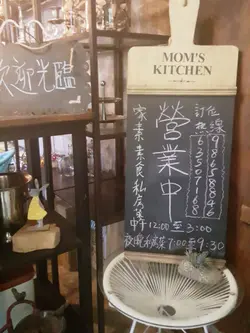 歡迎光臨
MOM'S
KITCHEN
訂位
線
營業中
家素素食私房菜
中午12:00至3:00
私房菜7:00至9:30